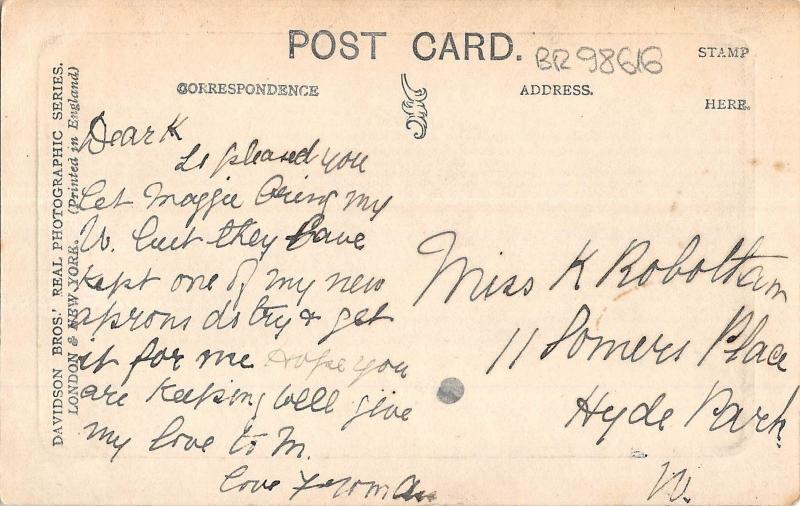 POST CARD.
BR 98616
STAMP
HERE.
CORRESPONDENCE
ADDRESS.
DAVIDSON BROS.' REAL PHOTOGRAPHIC SERIES.
LONDON & NEW YORK. (Printed in England)
Dear K
pleased you
let Maggie bring my
W. but they have
kept one of my new
aprons do try & get
it for me Hope you
are keeping well give
my love to M.
love from
Miss K Roboltam
11 Somers Place
Hyde Park
W.